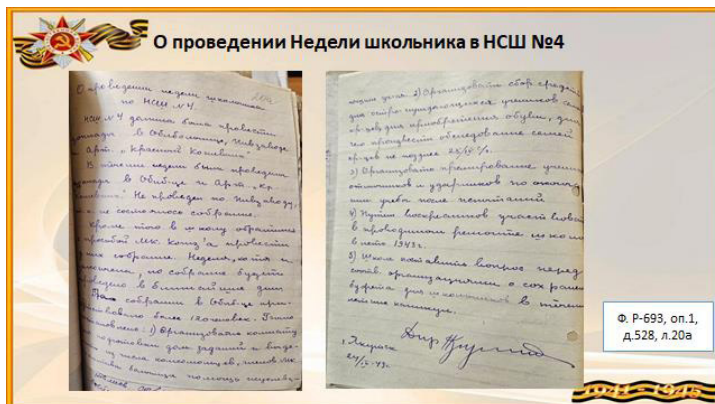 О проведении Недели школьника в НСШ №4
О проведении недели школьника
по НСШ №4.
НСШ №4 должна была провести
в Облбольнице, Пивзаводе
и Арт. „Красный
В течение недели были проведены
в Облб-це и Арт. „Кр.
Не проведен по Пивзаводу,
не состоялось собрание.
Кроме того в школу обратился
с просьбой МК. провести
у них собрание. Неделя, хотя и
, но собрание будет
проведено в ближайшие дни
На собрании в Облб-це
более 120 человек. Было
: 1) Организовать комнату
дом. заданий и
из числа комсомольцев, членов МК
помощь
2) Организовать сбор средств
для остро нуждающихся учеников
для приобретения обуви, для
чего произвести обследование семей
не позднее 25/IV с/г.
3) Организовать премирование учени
отличников и ударников по оконча
нии учебы после испытаний
4) Путем воскресников участвовать
в проводимом ремонте школы
в лето 1943 г.
5) Школа поставить вопрос перед
соотв. организациями о сохранен
буфета для школьников в течени
летних каникул.
Дир
г. Якутск
24/IV-43 г.
Ф. Р-693, оп.1,
д.528, л.20а
1941 - 1945